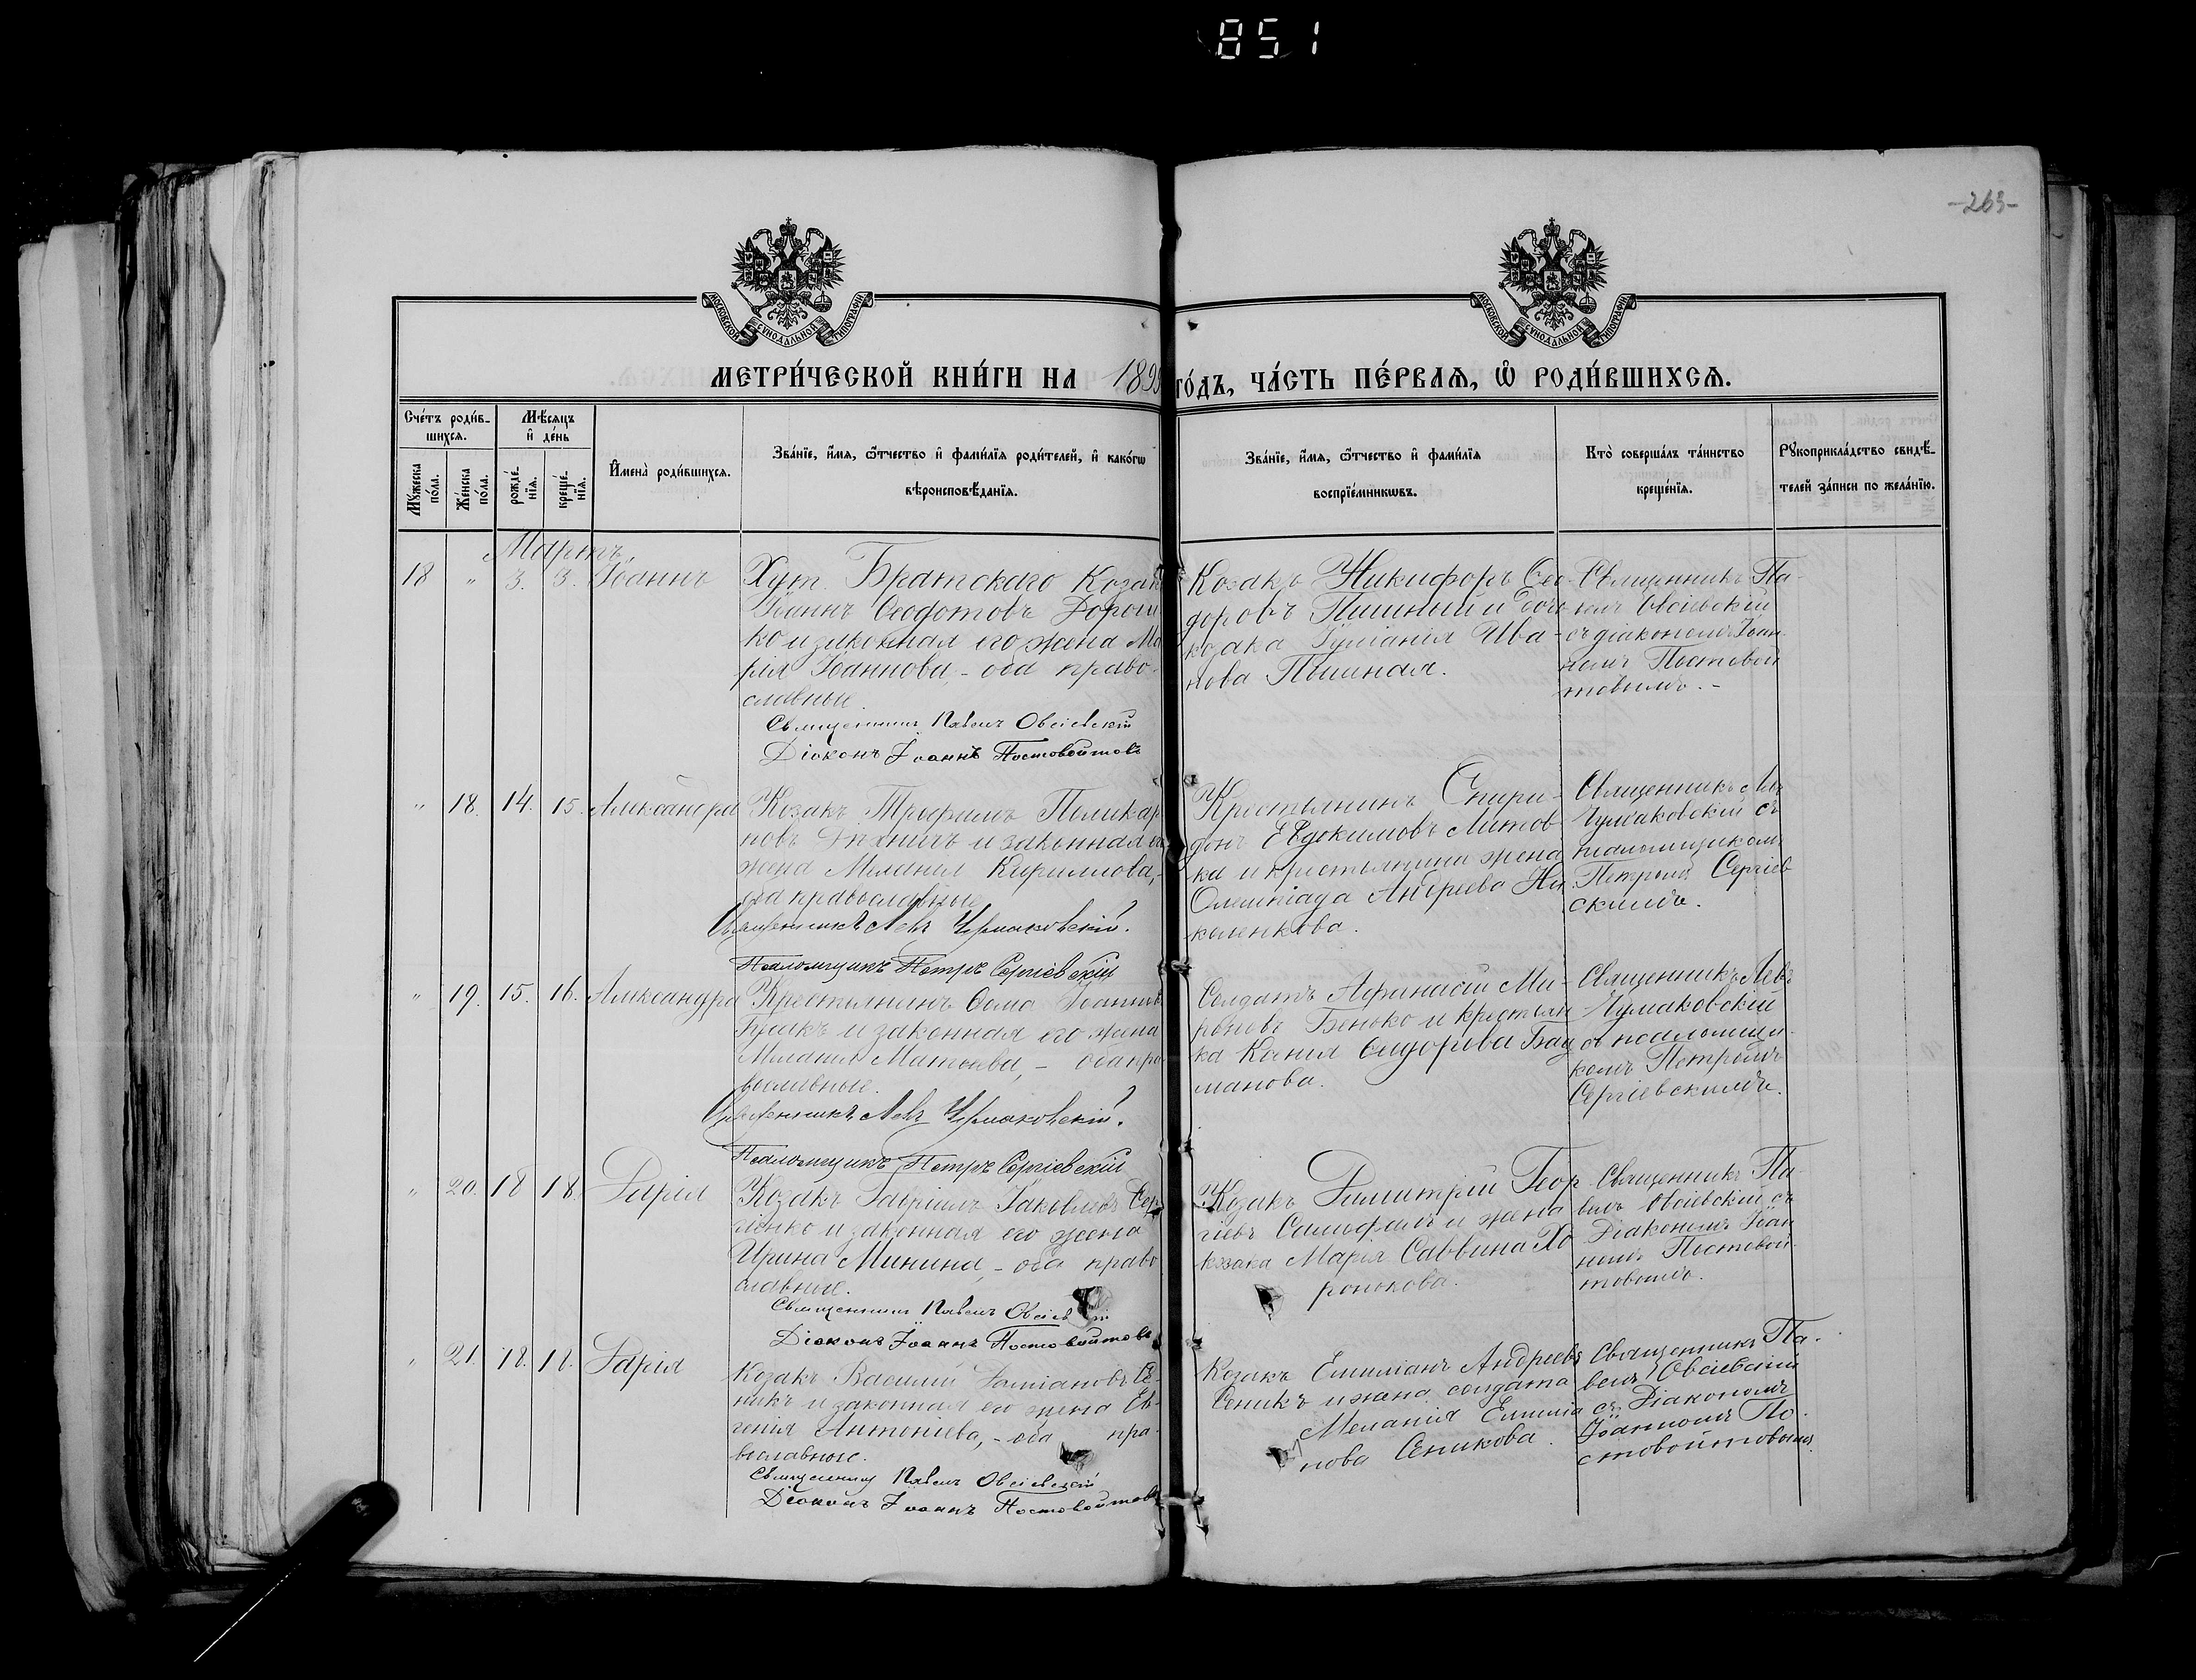 851
-263-
МОСКОВСКОЙ СѴНОДАЛЬНОЙ ТИПОГРАФІИ
МОСКОВСКОЙ СѴНОДАЛЬНОЙ ТИПОГРАФІИ
МЕТРИ́ЧЕСКОЙ КНИ́ГИ НА 1899 ГО́ДЪ, ЧА́СТЬ ПЕ́РВАѦ, Ѡ҆ РОДИ́ВШИХСѦ.
Сче́тъ роди́в-
шихсѧ.
Мѣ́сѧцъ
и҆ де́нь
Мꙋ́жеска
по́ла.
Же́нска
по́ла.
рожде́-
нїѧ.
креще́-
нїѧ.
И҆мена̀ роди́вшихсѧ.
Зва́нїе, и҆́мѧ, ѻ҆́тчество и҆ фами́лїѧ роди́телей, и҆ како́гѡ
вѣроисповѣ́данїѧ.
Зва́нїе, и҆́мѧ, ѻ҆́тчество и҆ фами́лїѧ
воспрїе́мникѡвъ.
Кто̀ соверша́лъ та́инство
креще́нїѧ.
Рꙋкоприкла́дство свидѣ́-
телей за́писи по жела́нїю.
Мартъ
18 " 3. 3. Іоаннъ
Хут. Братскаго Козакъ
Іоаннъ Ѳеодотовъ Дорош
ко и законная его жена Ма
рія Іоаннова, - оба право-
славные.
Священникъ Павелъ Овсіевскій
Діаконъ Іоаннъ Постовойтовъ
Козакъ Никифоръ Ѳео-
доровъ Пишный и дочь
козака Іуліанія Ива-
нова Пышная.
Священникъ Па-
велъ Овсіевскій
съ діакономъ Іоан-
номъ Постовой
товымъ. -
" 18. 14. 15. Александра
Козакъ Трофимъ Поликар
повъ и законная его
жена Меланія Кириллова, -
оба православные
Священникъ Левъ Чумаковскій.
Псаломщикъ Петръ Сергіевскій
Крестьянинъ Спири-
донъ Евдокимовъ Литов
ка и крестьянина жена
Олимпіада Андреева Ни
коленкова.
Священникъ Левъ
Чумаковскій съ
псаломщикомъ
Петромъ Сергіев
скимъ.
" 19. 15. 16. Александра
Крестьянинъ Ѳома Іоанновъ
и законная его жена
Меланія Матѳіева, - оба пра
вославные.
Священникъ Левъ Чумаковскій.
Псаломщикъ Петръ Сергіевскій
Солдатъ Афанасій Ми-
роновъ Бенько и крестьян
ка Ксенія Сидорова Бац
манова.
Священникъ Левъ
Чумаковскій
съ псаломщи-
комъ Петромъ
Сергіевскимъ.
" 20. 18 18. Дарія
Козакъ Гавріилъ Іаковлевъ Сер
гіенко и законная его жена
Ирина Минина, - оба право
славные.
Священникъ Павелъ Овсіевскій
Діаконъ Іоаннъ Постовойтовъ
Козакъ Димитрій Геор
гіевъ и жена
козака Марія Саввина Хо
ронькова.
Священникъ Па-
велъ Овсіевскій съ
Діакономъ Іоан
номъ Постовой-
товымъ.
" 21. 18. 18. Дарія
Козакъ Василій Даміановъ Се-
никъ и законная его жена Ев-
генія Антоніева, - оба пра-
вославные.
Священникъ Павелъ Овсіевскій
Діаконъ Іоаннъ Постовойтовъ
Козакъ Емиліанъ Андреевъ
Сеникъ и жена солдата
Меланія Емилія
нова Сеникова.
Священникъ Па-
велъ Овсіевскій
съ Діакономъ
Іоанномъ По-
стовойтовымъ.